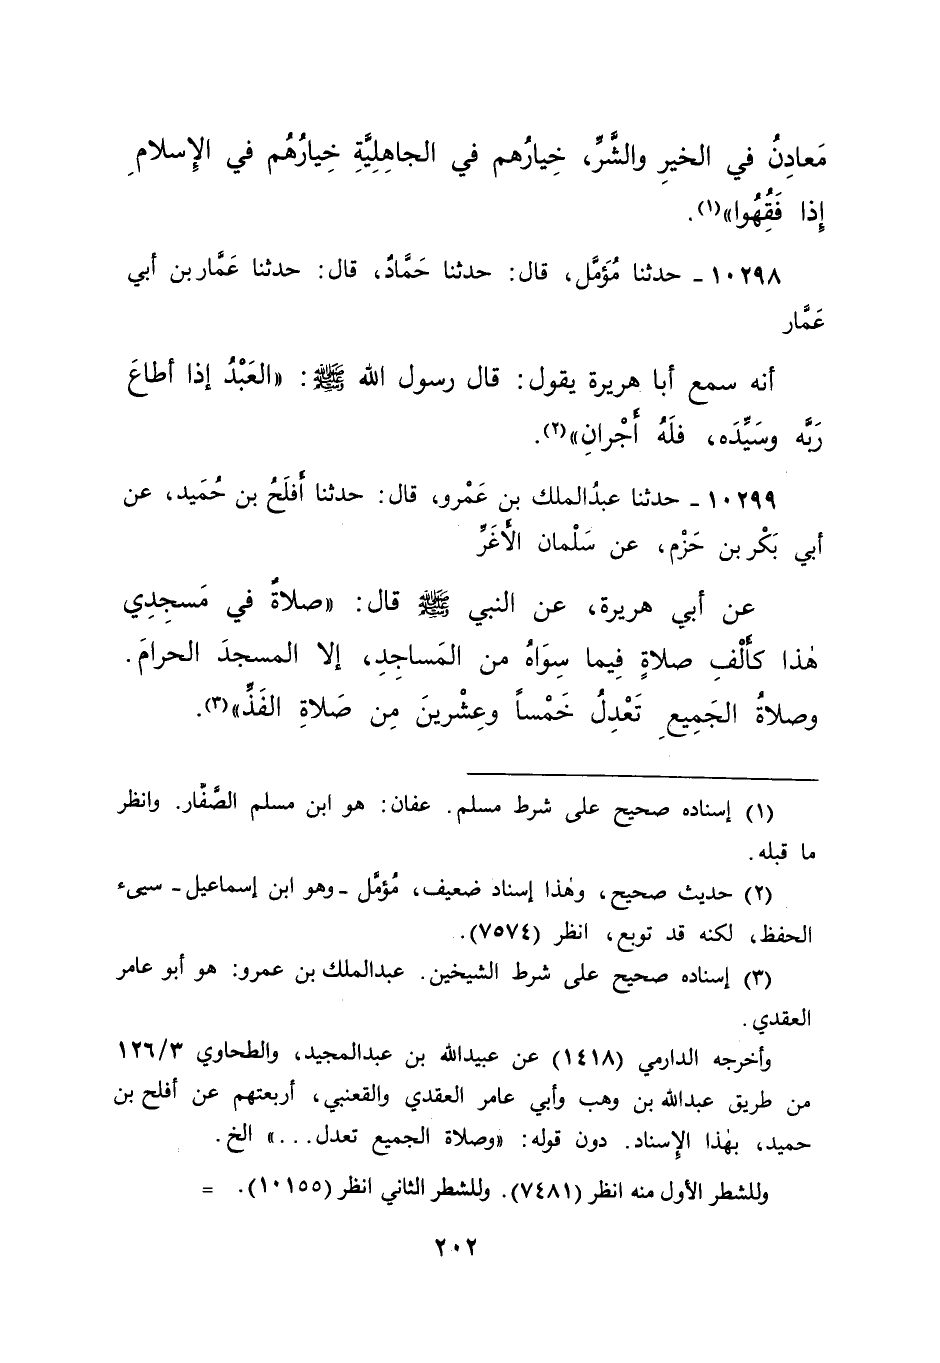 مَعادِنُ في الخيرِ والشَّرِّ، خِيارُهم في الجاهِلِيَّةِ خِيارُهُم في الإِسلامِ
إِذا فَقُهُوا»(١).
١٠٢٩٨ ـ حدثنا مُؤَمَّل، قال: حدثنا حَمَّادٌ، قال: حدثنا عَمَّار بن أبي
عَمَّار
أنه سمع أبا هريرة يقول: قال رسول الله ﷺ: «العَبْدُ إذا أطاعَ
رَبَّه وسَيِّدَه، فلَهُ أَجْرانِ»(٢).
١٠٢٩٩ ـ حدثنا عبدُالملك بن عَمْرو، قال: حدثنا أَفلَحُ بن حُمَيد، عن
أبي بَكْر بن حَزْم، عن سَلْمان الأَغَرِّ
عن أبي هريرة، عن النبي ﷺ قال: «صلاةٌ في مَسجِدِي
هٰذا كأَلْفِ صلاةٍ فِيما سِوَاهُ من المَساجِدِ، إلا المسجدَ الحرامَ.
وصلاةُ الجَمِيعِ تَعْدِلُ خَمْساً وعِشْرينَ مِن صَلاةِ الفَذِّ»(٣).
(١) إسناده صحيح على شرط مسلم. عفان: هو ابن مسلم الصَّفَّار. وانظر
ما قبله.
(٢) حديث صحيح، وهٰذا إسناد ضعيف، مُؤمَّل ـ وهو ابن إسماعيل ـ سيىء
الحفظ، لكنه قد توبع، انظر (٧٥٧٤).
(٣) إسناده صحيح على شرط الشيخين. عبدالملك بن عمرو: هو أبو عامر
العقدي.
وأخرجه الدارمي (١٤١٨) عن عبيدالله بن عبدالمجيد، والطحاوي ١٢٦/٣
من طريق عبدالله بن وهب وأبي عامر العقدي والقعنبي، أربعتهم عن أفلح بن
حميد، بهٰذا الإسناد. دون قوله: «وصلاة الجميع تعدل...» الخ.
وللشطر الأول منه انظر (٧٤٨١). وللشطر الثاني انظر (١٠١٥٥). =
٢٠٢